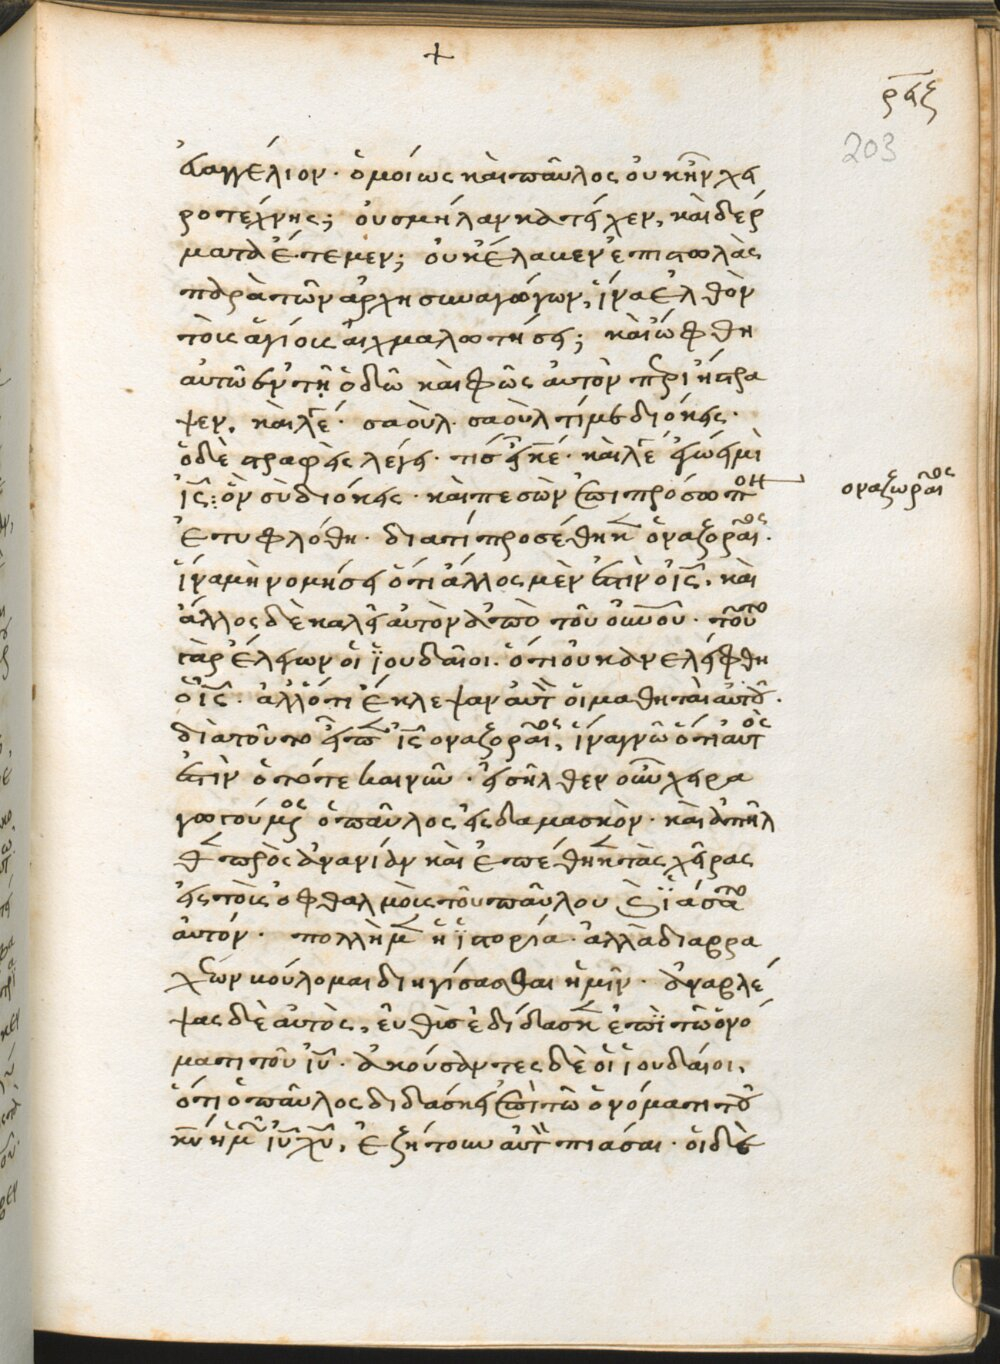 +
ρϟξ
203
ἐυαγγέλιον· ὁμοίως καὶ παῦλος οὐκ ἦν χει
ροτέχνης; οὐ σμήλαν κατεῖχεν, καὶ δέρ
ματα ἔτεμεν; οὐκ ἔλαμεν ἐπιστολὰς
παρὰ τῶν ἀρχησυναγώγων, ἵνα ἐλθὸν
τοῖς ἁγίοις αἰχμαλωτήσει; καὶ ὤφθη
αὐτῶ ἐν τῆ ὁδῶ καὶ φῶς αὐτὸν περιήστρα
ψεν, καὶ λέ· σαοὺλ σαοὺλ τί με διόκεις·
ὁ δὲ στραφεὶς λέγει· τίς εἶ κε· καὶ λέ ἐγώ εἰμὶ
ἰς: ὃν σὺ διόκεις· καὶ πεσὼν ἐπὶ πρόσωπον
ὁ ναζωραῖος
ἐτυφλόθη· διατί προσέθηκ ὁ ναζοραῖος·
ἵνα μὴ νομήσει ὅτι ἄλλος μὲν ἐστὶν ὁ ις, καὶ
ἄλλος δὲ καλεῖ αὐτὸν ἀπὸ τοῦ οὐνου· τοῦτο
γὰρ ἔλεγων οἱ ἰουδαῖοι· ὅτι οὐκ ἀνελείφθη
ὁ ις· ἀλλ' ὅτι ἔκλεψαν αὐτ οἱ μαθηταὶ αὐτοῦ·
διὰ τοῦτο εἶπ ις ὁ ναζοραῖος, ἵνα γνῶ ὅτι αὐτὸς
ἐστὶν ὁ τότε
γωγούμενος ὁ παῦλος εἰς δαμασκὸν· καὶ ἀπῆλ
θ πρὸς ἀνανίαν καὶ ἐπέθηκ τὰς χεῖρας
εἰς τοῖς ὀφθαλμοῖς τοῦ παύλου καὶ ἰάσατο
αὐτόν· πολλὴ μ ἡ ἱστορία· ἀλλὰ διαρρα
χέων μούλομαι διηγίσασθαι ἡμῖν· ἀναβλέ
ψας δὲ αὐτὸς, εὐθὶς ἐδίδασκ ἐπὶ τῶ ὀνό
ματι τοῦ ιυ· ἀκούσαντες δὲ οἱ ἰουδαίοι,
ὅτι ὁ παῦλος διδάσκει ἐπὶ τῶ ὀνόματι τοῦ
κυ ἡμ ιυ χυ, ἐζήτουν αὐτὸν πιάσαι· οἱ δὲ